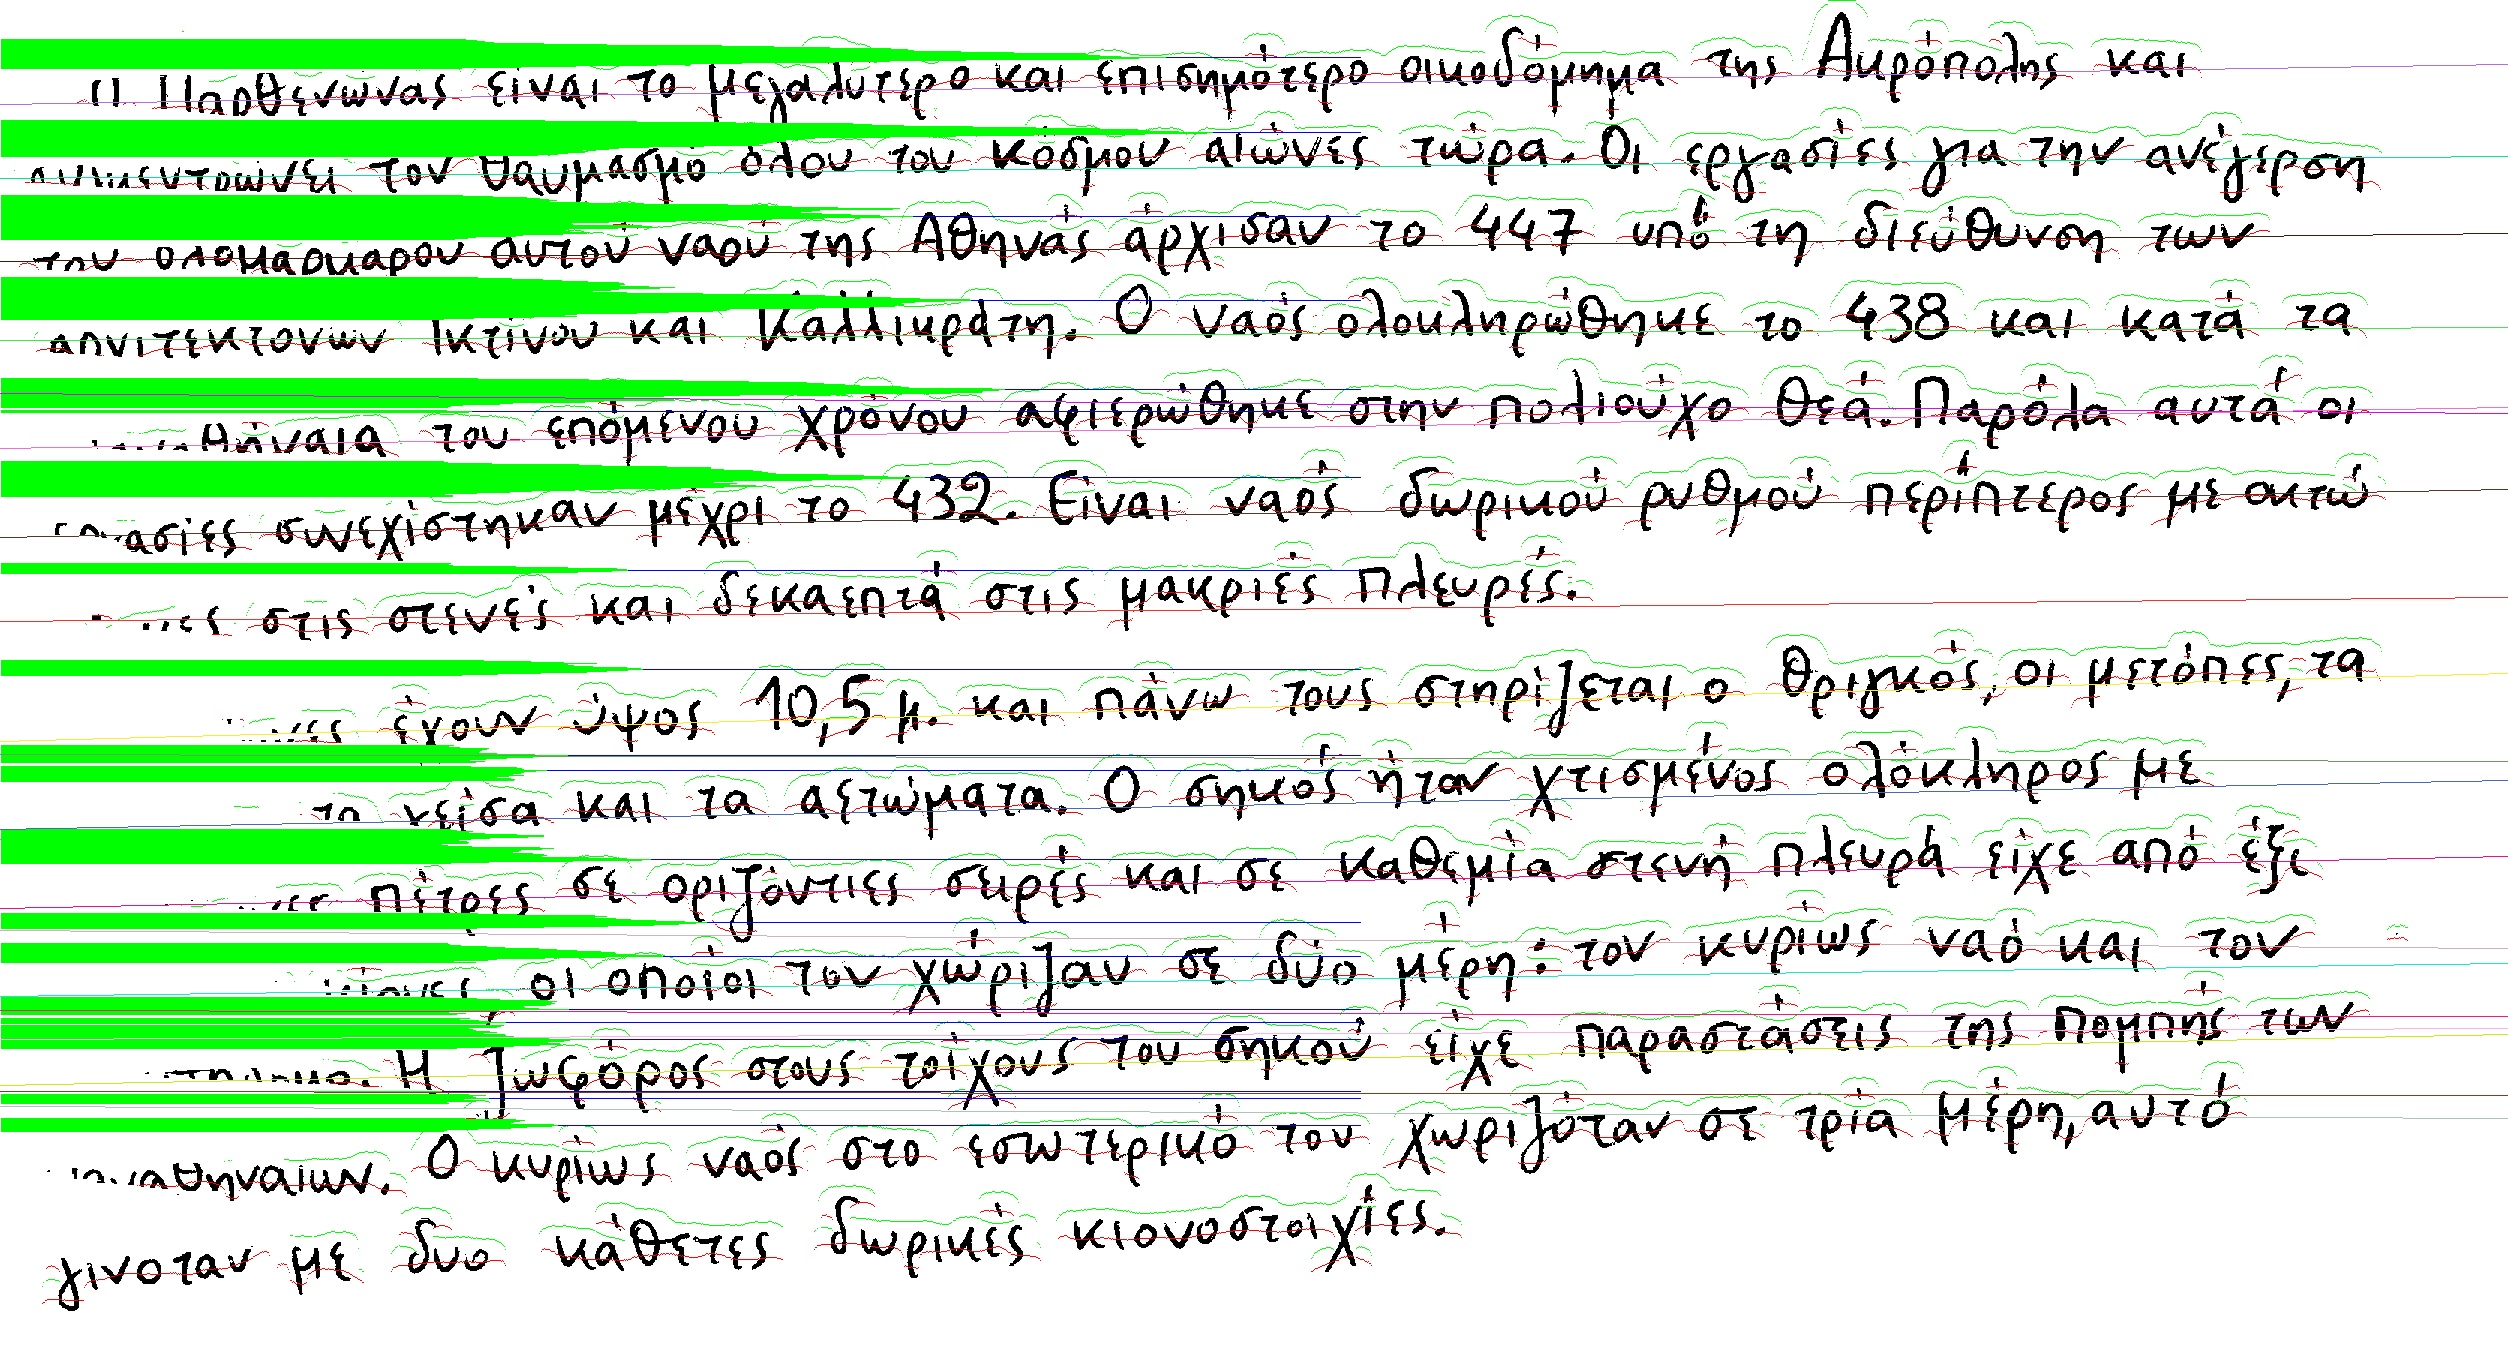 Παρθενώνας είναι το μεγαλύτερο και επισημότερο οικοδόμημα της Ακρόπολης και
συγκεντρώνει τον θαυμασμό όλου του κόσμου αιώνες τώρα. Οι εργασίες για την ανέγερση
του ολομάρμαρου αυτού ναού της Αθηνάς άρχισαν το 447 υπό τη διεύθυνση των
αρχιτεκτόνων Ικτίνου και Καλλικράτη. Ο ναός ολοκληρώθηκε το 438 και κατά τα
του επόμενου χρόνου αφιερώθηκε στην πολιούχο θεά. Παρόλα αυτά οι
συνεχίστηκαν μέχρι το 432. Είναι ναός δωρικού ρυθμού περίπτερος με οκτώ
στις στενές και δεκαεπτά στις μακριές πλευρές.
έχουν ύψος 10,5 μ. και πάνω τους στηρίζεται ο θριγκός, οι μετόπες, τα
γείσα και τα αετώματα. Ο σηκός ήταν χτισμένος ολόκληρος με
πέτρες σε οριζόντιες σειρές και σε καθεμία στενή πλευρά είχε από έξι
κίονες οι οποίοι τον χώριζαν σε δύο μέρη: τον κυρίως ναό και τον
Η ζωφόρος στους τοίχους του σηκού είχε παραστάσεις της πομπής των
Παναθηναίων. Ο κυρίως ναός στο εσωτερικό του χωριζόταν σε τρία μέρη, αυτό
γινοταν με δυο κάθετες δωρικές κιονοστοιχίες.